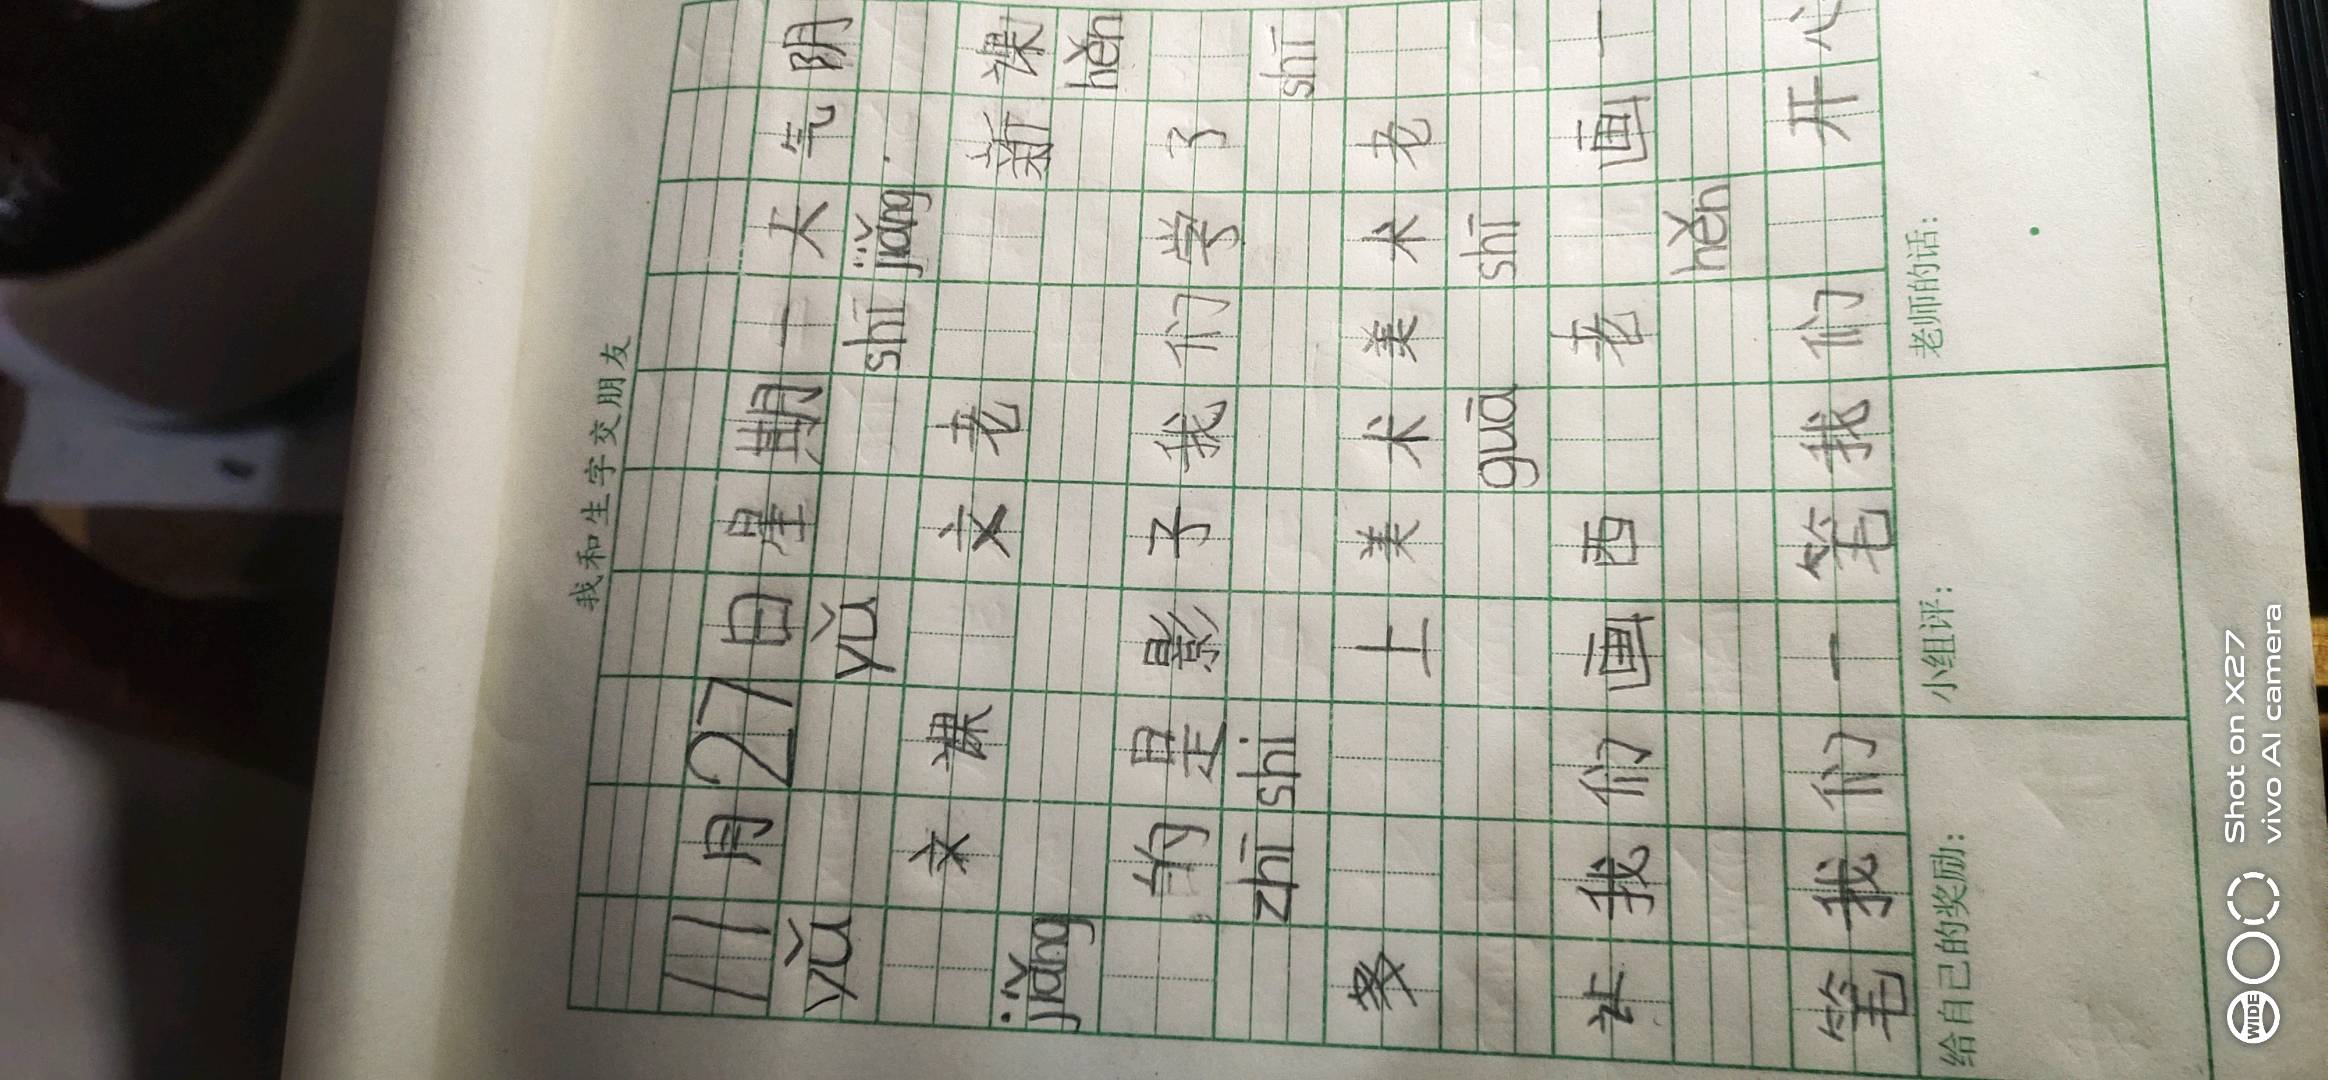 我和生字交朋友
11月27日星期一天气阴
yǔ yǔ shī jiǎng
文课 文老 新课
jiǎng hěn
的是影子我们学了
zhī shi shī
多 上美术美术老
guā shī
让我们画西 老 画一
hěn
笔我们一笔我们 开心
给自己的奖励: 小组评: 老师的话:
WIDE
Shot on X27
vivo AI camera